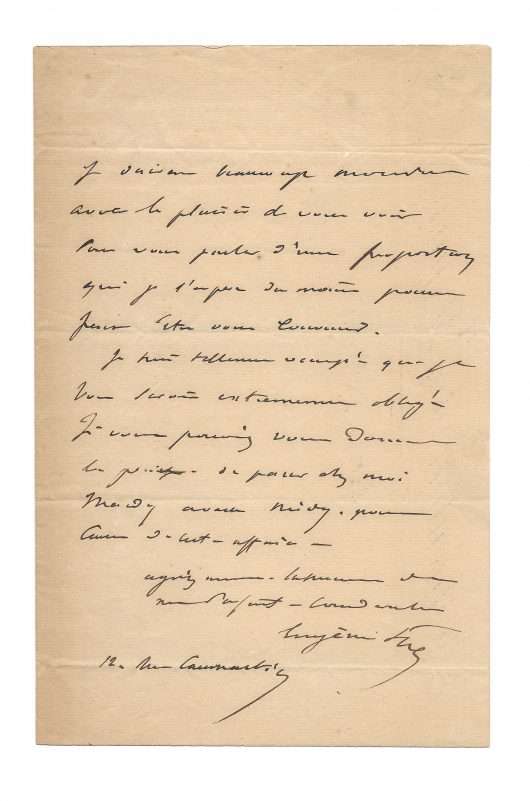 Je désirerai beaucoup monsieur
avoir le plaisir de vous voir
pour vous parler d'une proposition
qui je l'espère du moins pourra
peut être vous convenir.
Je suis tellement occupé que je
vous serais extremement obligé
si vous pouviez vous donner
la peine de passer chez moi
Mardy avant midy pour
causer de cette affaire —
agréez monsieur l'assurance de
Eugène Sue
12 rue Caumartin